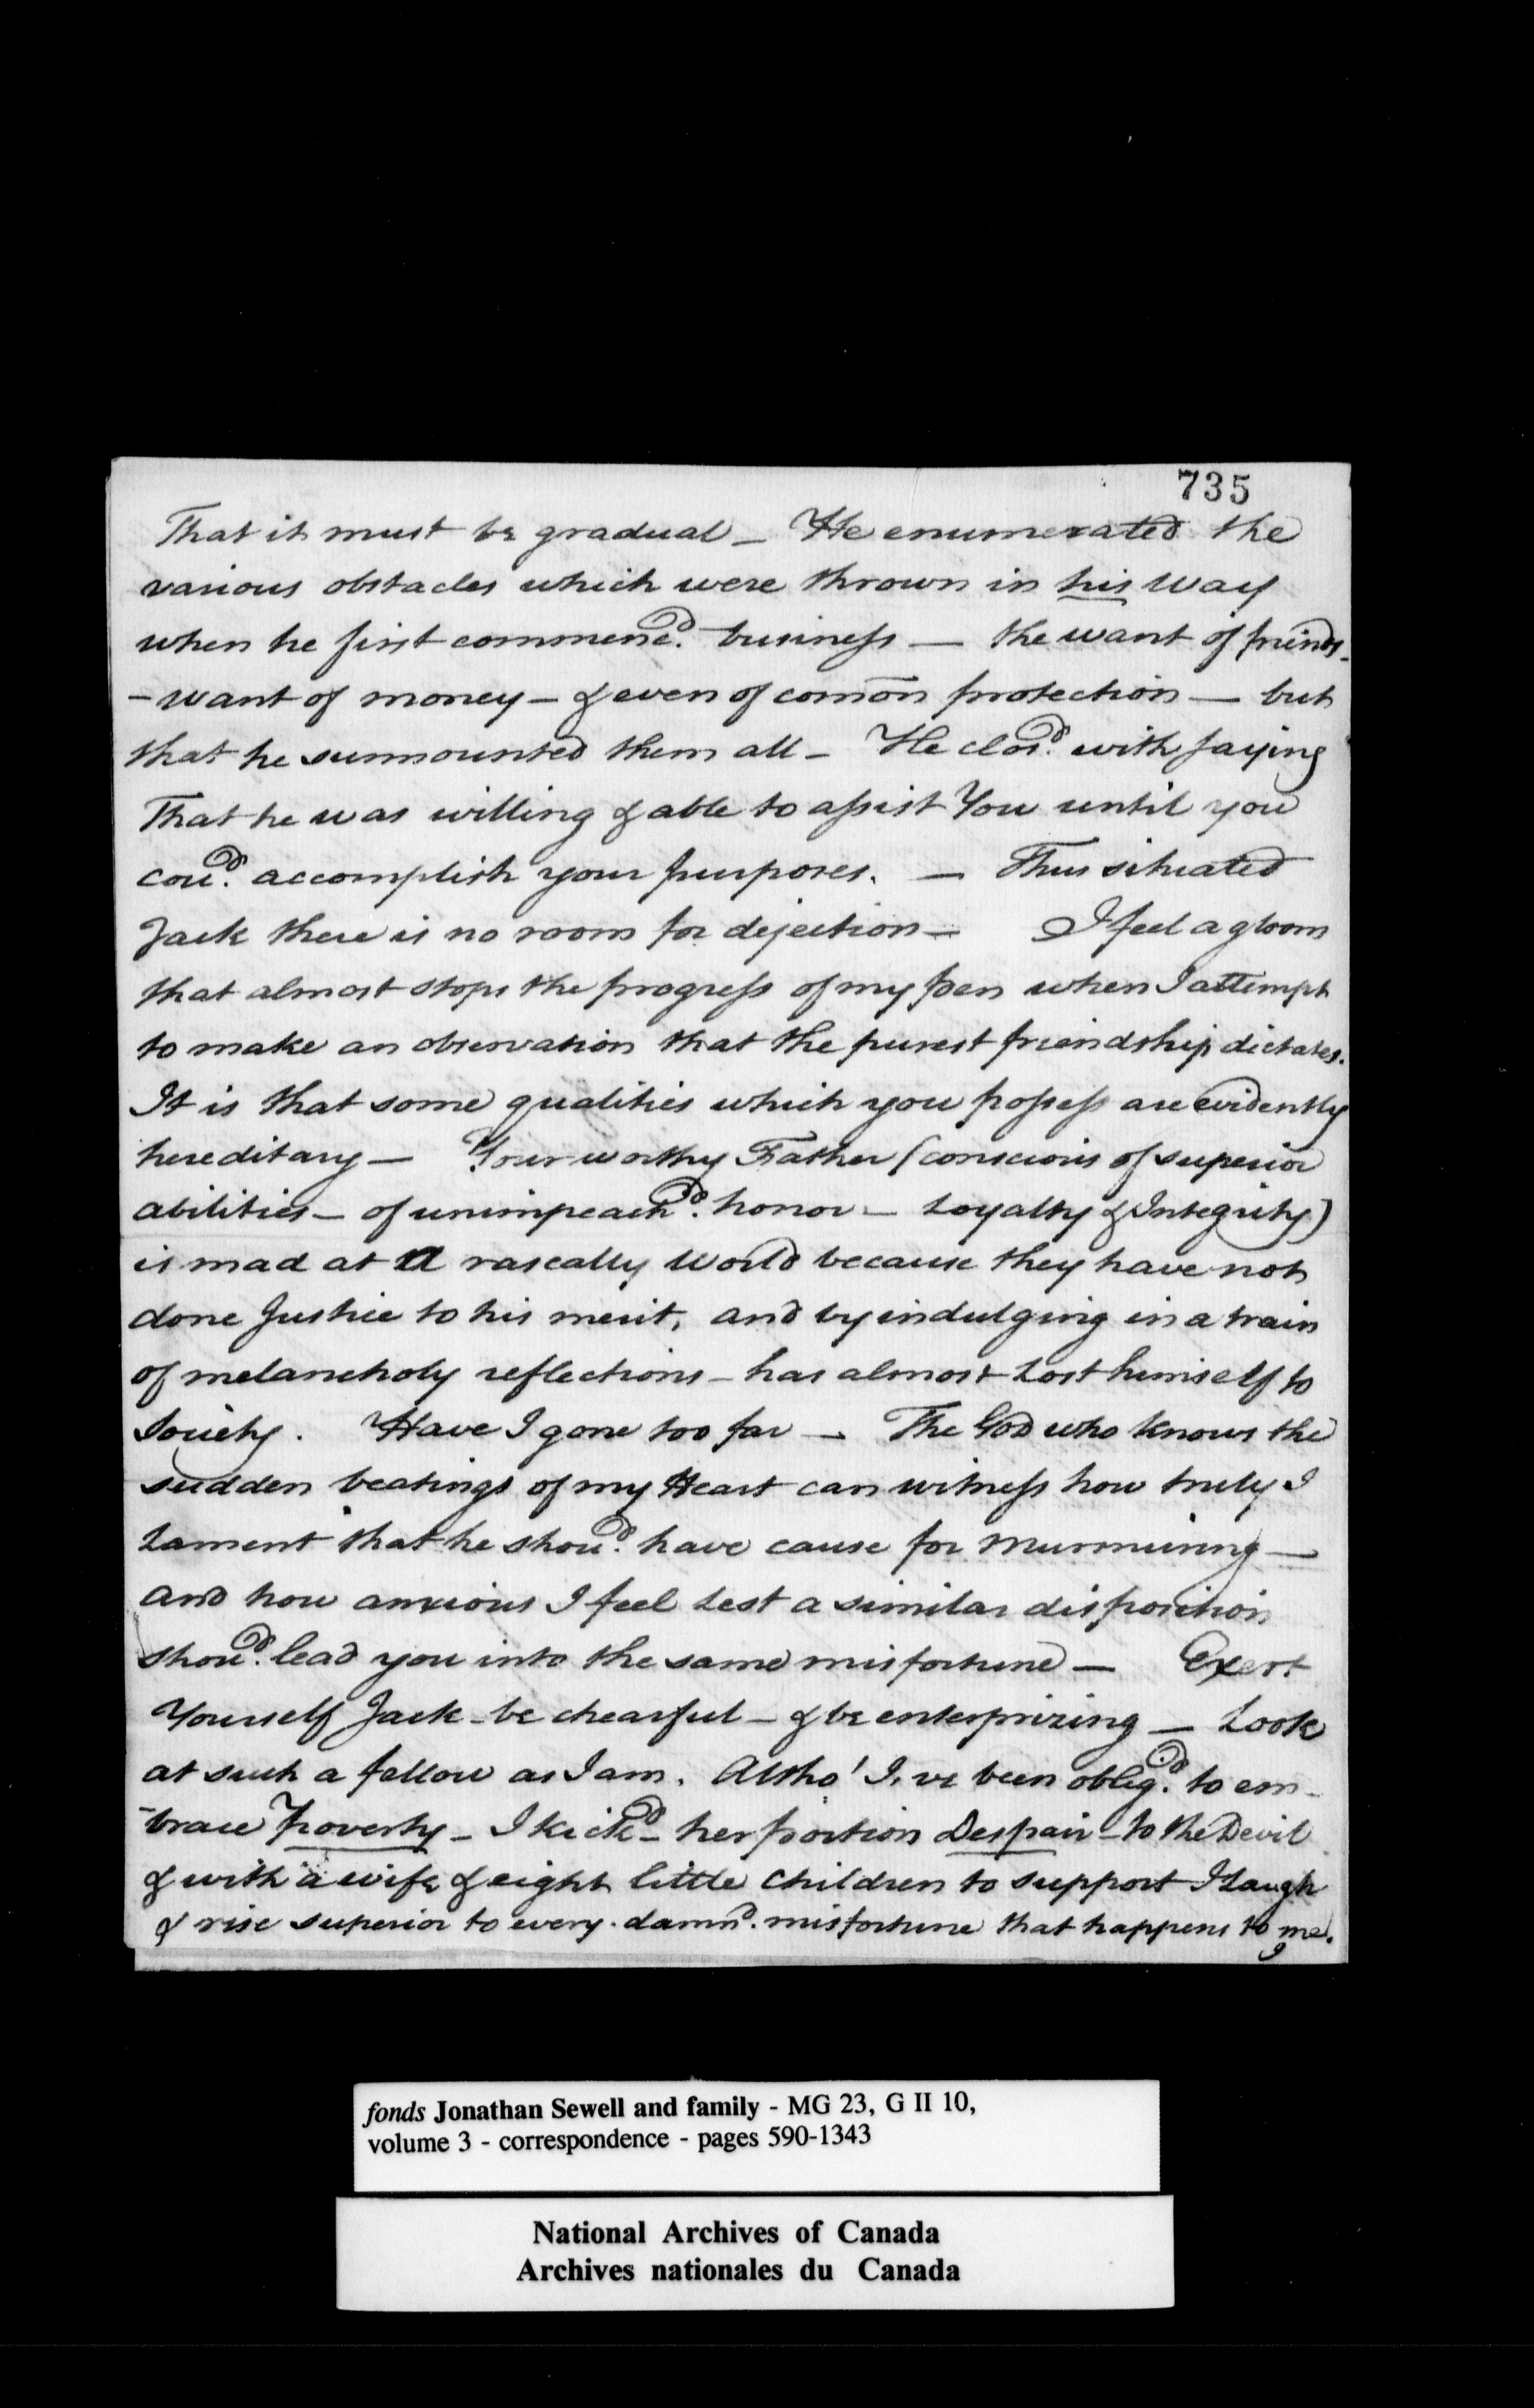 735
That it must be gradual — He enumerated the
various obstacles which were thrown in his way
when he first commenc'd. business — the want of friends —
— want of money — & even of com̄on protection — but
that he surmounted them all — He clos'd. with saying
That he was willing & able to assist You until you
cou'd. accomplish your purposes. — Thus situated
Jack there is no room for dejection — I feel a gloom
that almost stops the progress of my pen when I attempt
to make an observation that the purest friendship dictates.
It is that some qualities which you possess are evidently
hereditary — Your worthy Father (conscious of superior
abilities — of unimpeach'd. honor — Loyalty & Integrity)
is mad at a rascally World because they have not
done Justice to his merit, and by indulging in a train
of melancholy reflections — has almost Lost himself to
Society. Have I gone too far — The God who knows the
sudden beatings of my Heart can witness how truly I
Lament that he shou'd. have cause for Murmuring —
and how anxious I feel Lest a similar disposition
shou'd. lead you into the same misfortune — Exert
Yourself Jack — be chearful — & be enterprizing — Look
at such a fellow as I am. Altho' I've been oblig'd. to em-
-brace Poverty — I kick'd — her portion Despair — to the Devil
& with a wife & eight little Children to support I Laugh
& rise superior to every damn'd. misfortune that happens to me.
I
fonds Jonathan Sewell and family - MG 23, G II 10,
volume 3 - correspondence - pages 590-1343
National Archives of Canada
Archives nationales du Canada